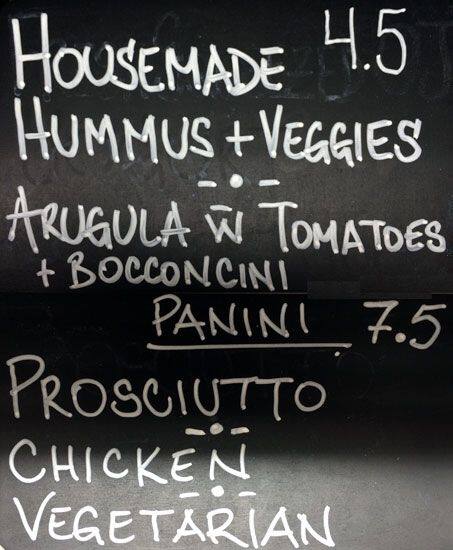 HOUSEMADE 4.5
HUMMUS + VEGGIES
ARUGULA W̄ TOMATOES
+ BOCCONCINI
PANINI 7.5
PROSCIUTTO
CHICKEN
VEGETARIAN